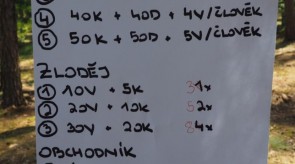 ④ 40K + 40D + 4V/ČLOVĚK
⑤ 50K + 50D + 5V/ČLOVĚK
ZLODĚJ
① 10V + 5K 31x
② 20V + 10K 52x
③ 30V + 20K 84x
OBCHODNÍK